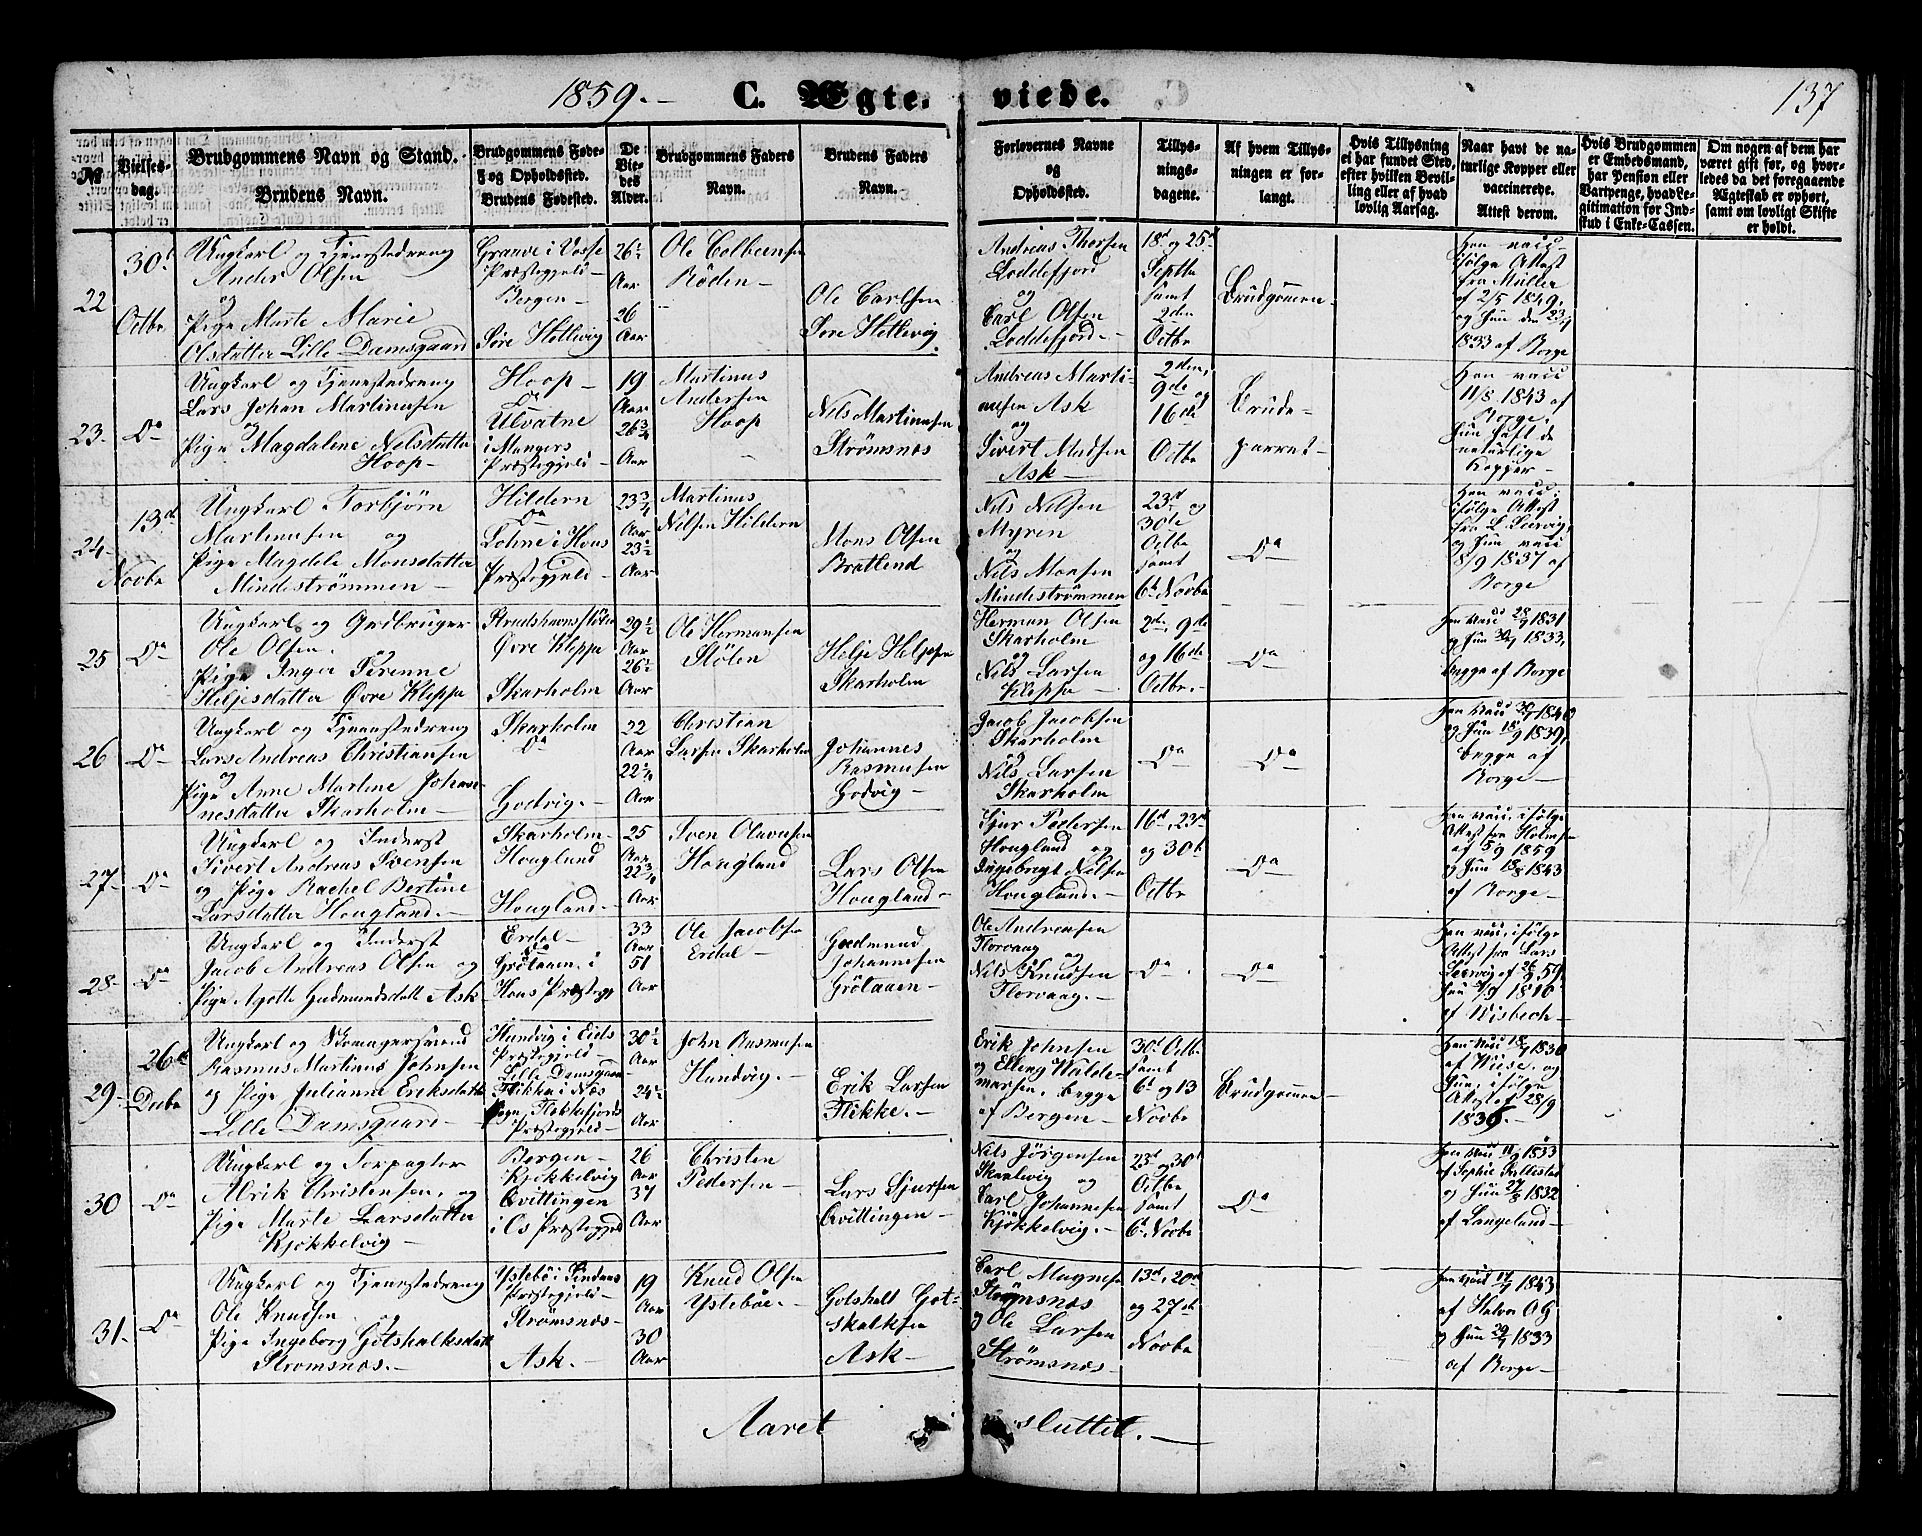 1859.- C. Ægte. viede. 137
№
Vielses-
dag.
Brudgommens Navn og Stand.
Brudens Navn.
Brudgommens Føde-
og Opholdssted.
Brudens Fødested.
De
Vie-
des
Alder.
Brudgommens Faders
Navn.
Brudens Faders
Navn.
Forlovernes Navne
og
Opholdssted.
Tillys-
nings-
dagene.
Af hvem Tillys-
ningen er for-
langt.
Hvis Tillysning
ei har fundet Sted,
efter hvilken Bevil-
ling eller af hvad
lovlig Aarsag.
Naar havt de na-
turlige Kopper eller
vaccinerede.
Attest derom.
Hvis Brudgommen
er Embedsmand,
har Pension eller
Vartpenge, hvad Le-
gitimation for Ind-
skud i Enke-Cassen.
Om nogen af dem har
været gift før, og hvor-
ledes da det foregaaende
Ægtestad er ophørt,
samt om lovligt Skifte
er holdt.
22
30t
Octbr
Ungkarl og Tjenestedreng
Anders Olsen
og
Pige Marte Marie
Olsdatter Lille Damsgaard
Graave i Vosse
Præstegjeld-
Bergen-
Søre Hetlevig
26½
Aar
26
Aar
Ole Colbeensen
Røden-
Ole Carlsen
Søre Hetlevig
Andreas Thorsen
Loddefjord
og
Carl Olsen
Loddefjord-
18d og 25d
Septbr
samt
2den
Octbr
Brudgommen-
Han vacc-
ifølge Attest
fra Müller
af 2/5 1849.
og Hun den 23/9
1833 af Borge
23-
Da
Ungkarl og Tjenestedreng
Lars Johan Martinussen
og
Pige Magdalene Nilsdatter
Hoop-
Hoop-
Da
Ulvatne
i Mangers
Præstegjeld-
19
Aar
26¾
Aar
Martinus
Andersen
Hoop
Nils Martinussen
Strømsnæs
Andreas Marti-
nusen Ask
og
Sivert Madsen
Ask-
2den,
9de og
16de
Octbr
Brude-
parret-
Han vacc
11/8 1843 af
Borge,
Hun havt de
naturlige
Kopper-
24-
13de
Novbr
Ungkarl Torbjørn
Martinussen og
Pige Magdele Monsdatter
Mindestrømmen-
Hildern
Da
Lohne i Hous
Præstegjeld-
23¾
Aar
23½
Aar
Martinus
Nilsen Hildern
Mons Olsen
Brattend
Nils Nilsen
Myren
og
Nils Monsen
Mindestrømmen
23d og
30de
Octbr
samt
6t Novbr
Da
Han vacc:
ifølge Attest
fra L. Leervig,
og Hun vacc
8/9 1837 af
Borge
25
Da
Ungkarl og Grdbruger
Ole Olsen.
og
Pige Inger Serenne
Heljesdatter Øvre Kleppe
Øvre Kleppe
Skarholm
29½
Aar
26½
Aar
Ole Hermansen
Stølen
Helje Heljesen
Skarholm
Herman Olsen
Skarholm
og
Nils Larsen
Kleppe-
2de, 9de
og 16de
Octbr.
Da
Han vacc 28/9 1831
og Hun 30/9 1833,
begge af Borge
26
Da
Ungkarl og Tjenestedreng
Lars Andreas Christiansen
og
Pige Anne Martine Johan-
nesdatter Skarholm-
Skarholm
Da
Godvig.-
22
Aar
22¼
Aar
Christian
Larsen Skarholm
Johannes
Rasmusen
Godvig-
Jacob Jacobsen
Skarholm
og
Nils Larsen
Skarholm
Da
Da
og Hun 18/9 1839,
begge af
Borge-
27-
Da
Ungkarl og Inderst
Sivert Andreas Svensen
og Pige Rachel Bertine
Larsdatter Hougland.-
Skarholm-
Hougland
Hougland.-
25
Aar
22¾
Aar
Sven Olavusen
Hougland
Lars Olsen
Hougland-
Sjur Pedersen
Hougland og
Ingebregt Nilsen
Hougland.-
16d, 23d
og 30t
Octbr
Da
Han vacc. ifølge
Attest fra Holmsen
af 5/9 1859
og Hun 18/8 1843
af Borge
28-
Da
Ungkarl og Inderst
Jacob Andreas Olsen og
Pige Agotte Gudmundsdatt Ask
Erdal-
Da
Grøtaaen i
Hous Præstegj
33
Aar
51
Aar
Ole Jacobsen
Erdal-
Gudmund
Johannesen
Grøtaaen-
Ole Andreasen
Florvaag
og
Nils Knudsen
Florvaag.-
Da
Da
Han vacc. ifølge
Attest fra Lars
Leervig af 26/9 59
Hun 9/9 1816
af Wisbech-
29-
26de
Decbr
Ungkarl og Skomagersvend
Rasmus Martinus Johnsen
og Pige Julianne Eriksdatter
Lille Damsgaard-
Hundvig i Eids
Præstegjeld-
Lille Damsgaard
Flikke i Næs
Sogn, Flekkefjords
Præstegjeld-
30½
Aar
24½
Aar
John Rasmusen
Hundvig.-
Erik Larsen
Flikke.-
Erik Johnsen
og Elling Walde-
marsen, begge
af Bergen-
30t Octbr
samt
6t og 13
Novbr
Brudgommen-
af Wiese, og
Hun, ifølge
Attest af 28/9
1836.-
30
Da
Ungkarl og Forpagter
Alrik Christensen, og
Pige Marte Larsdatter
Kjøkkelvig-
Bergen-
Kjøkkelvig
Qvittingen
i Os Præstegjeld
26
Aar
37
Aar
Christen
Pedersen-
Lars Sjursen
Qvittingen-
Nils Jørgensen
Skaalevig og
Carl Johannesen
Kjøkkelvig.-
23d og 30t
Octbr
samt
6t Novbr
Da
Han vacc 11/9 1833
og Hun 27/8 1832
af Langeland-
31.-
Da
Ungkarl og Tjenestedreng
Ole Knudsen
og
Pige Ingeborg Gotshalksdatt
Strømsnæs.-
Ystebø i Lindaas
Præstegjeld-
Strømsnæs-
Ask.-
19
Aar
30
Aar
Knud Olsen
Ystebøe.-
Gotshalk Got-
skalksen
Ask-
Carl Magnesen
Strømsnæs
og Ole Larsen
Strømsnæs-
13d, 20de
og 27de
Novbr
af Halvor AG
og Hun 29/9 1833
af Borge-
Aaret sluttet.-